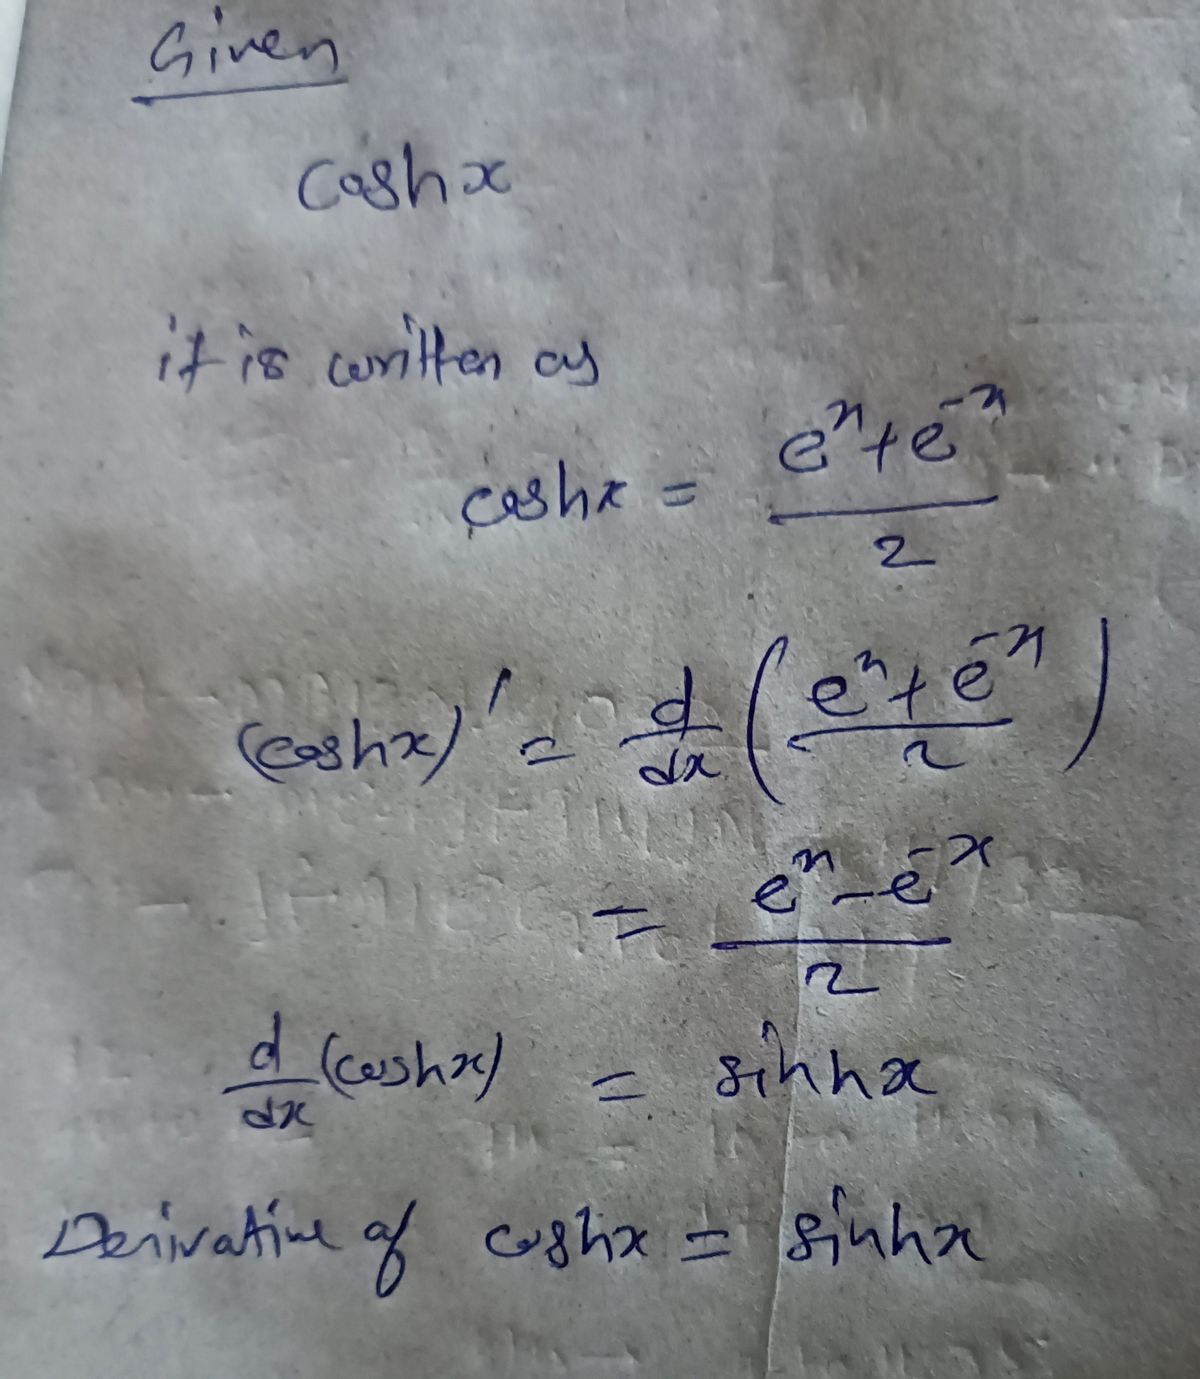 Given
coshx
it is written as
coshx = (e^x + e^-x)/2
(coshx)' = d/dx ((e^x + e^-x)/2)
= (e^x - e^-x)/2
d/dx (coshx) = sinhx
Derivative of coshx = sinhx